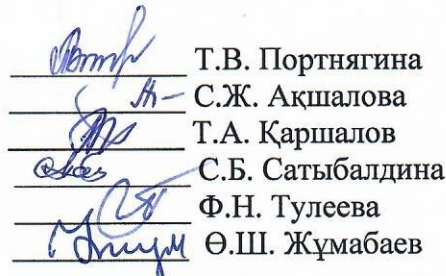 Т.В. Портнягина
С.Ж. Ақшалова
Т.А. Қаршалов
С.Б. Сатыбалдина
Ф.Н. Тулеева
Ө.Ш. Жұмабаев